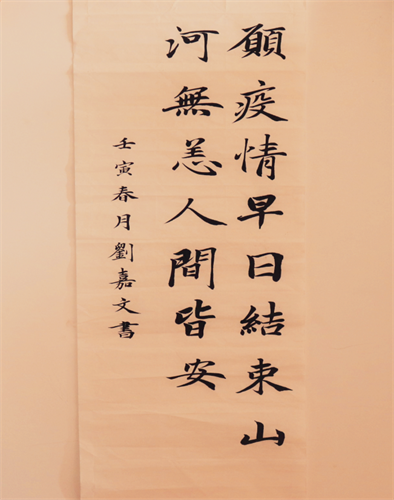 願疫情早日結束山
河無恙人間皆安
壬寅春月劉嘉文書